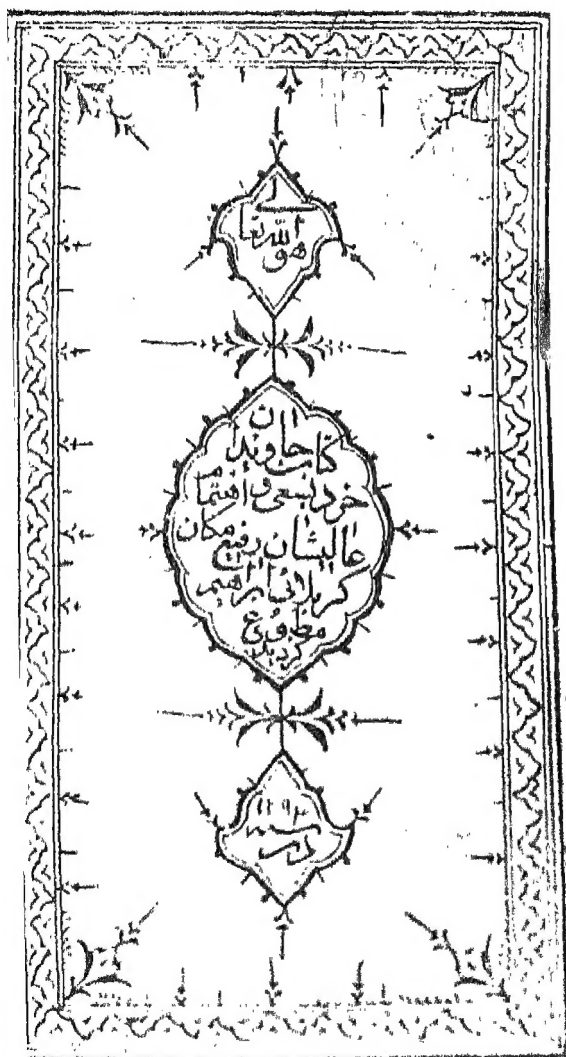 هو الله تعالی
کتاب جاویدان
خرد بسعی و اهتمام
عالیشان رفیع مکان
کربلائی ابراهیم
مطبوع
گردید
در سنه ۱۲۹۳